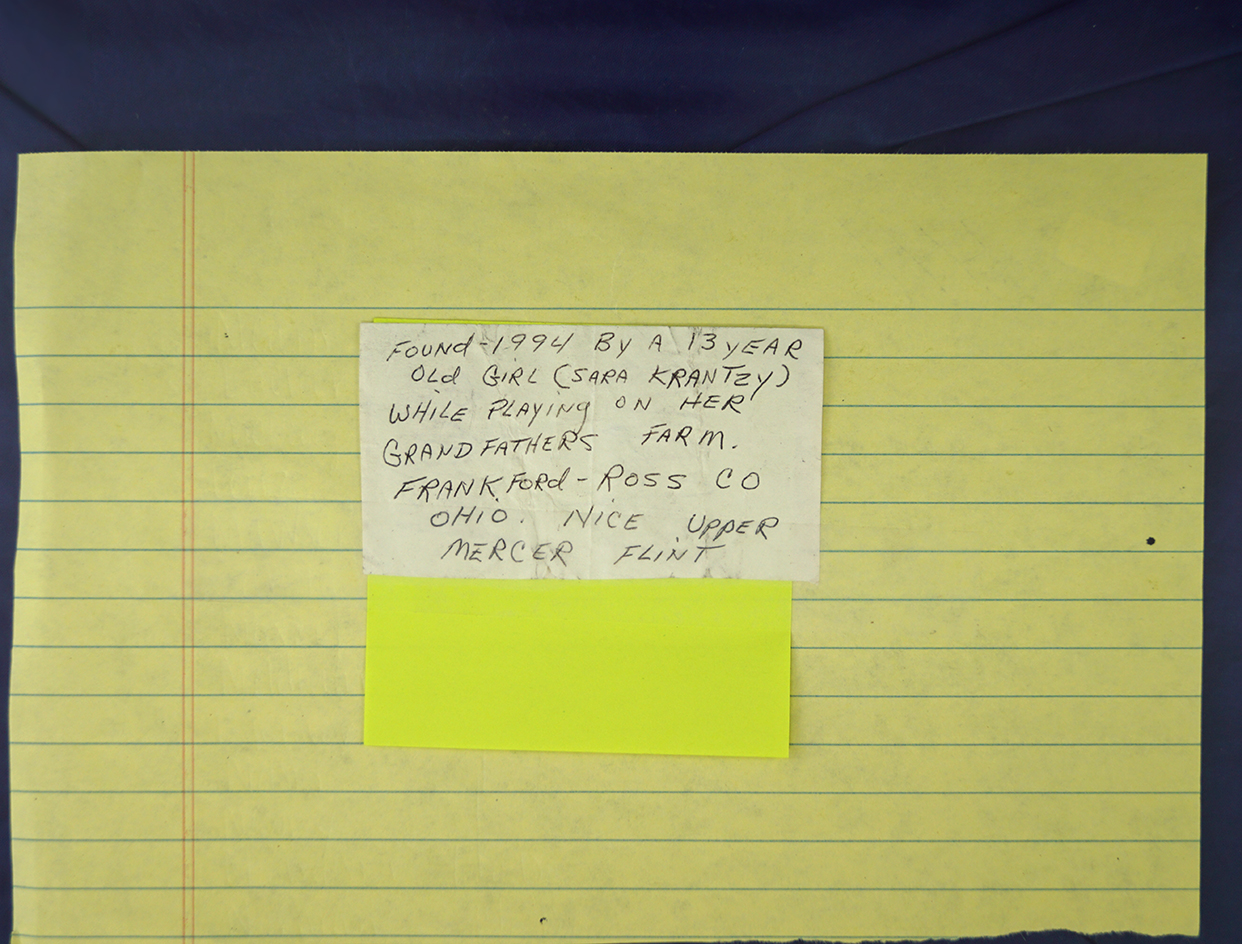 FOUNd-1994 By A 13 yEAR
OLd GiRL (SARA KRANTzy)
WHiLE PLAying ON HER
GRANDFATHERS FARM.
FRANKFORd-ROSS CO
OHiO. NiCE UPPER
MERCER FLiNT